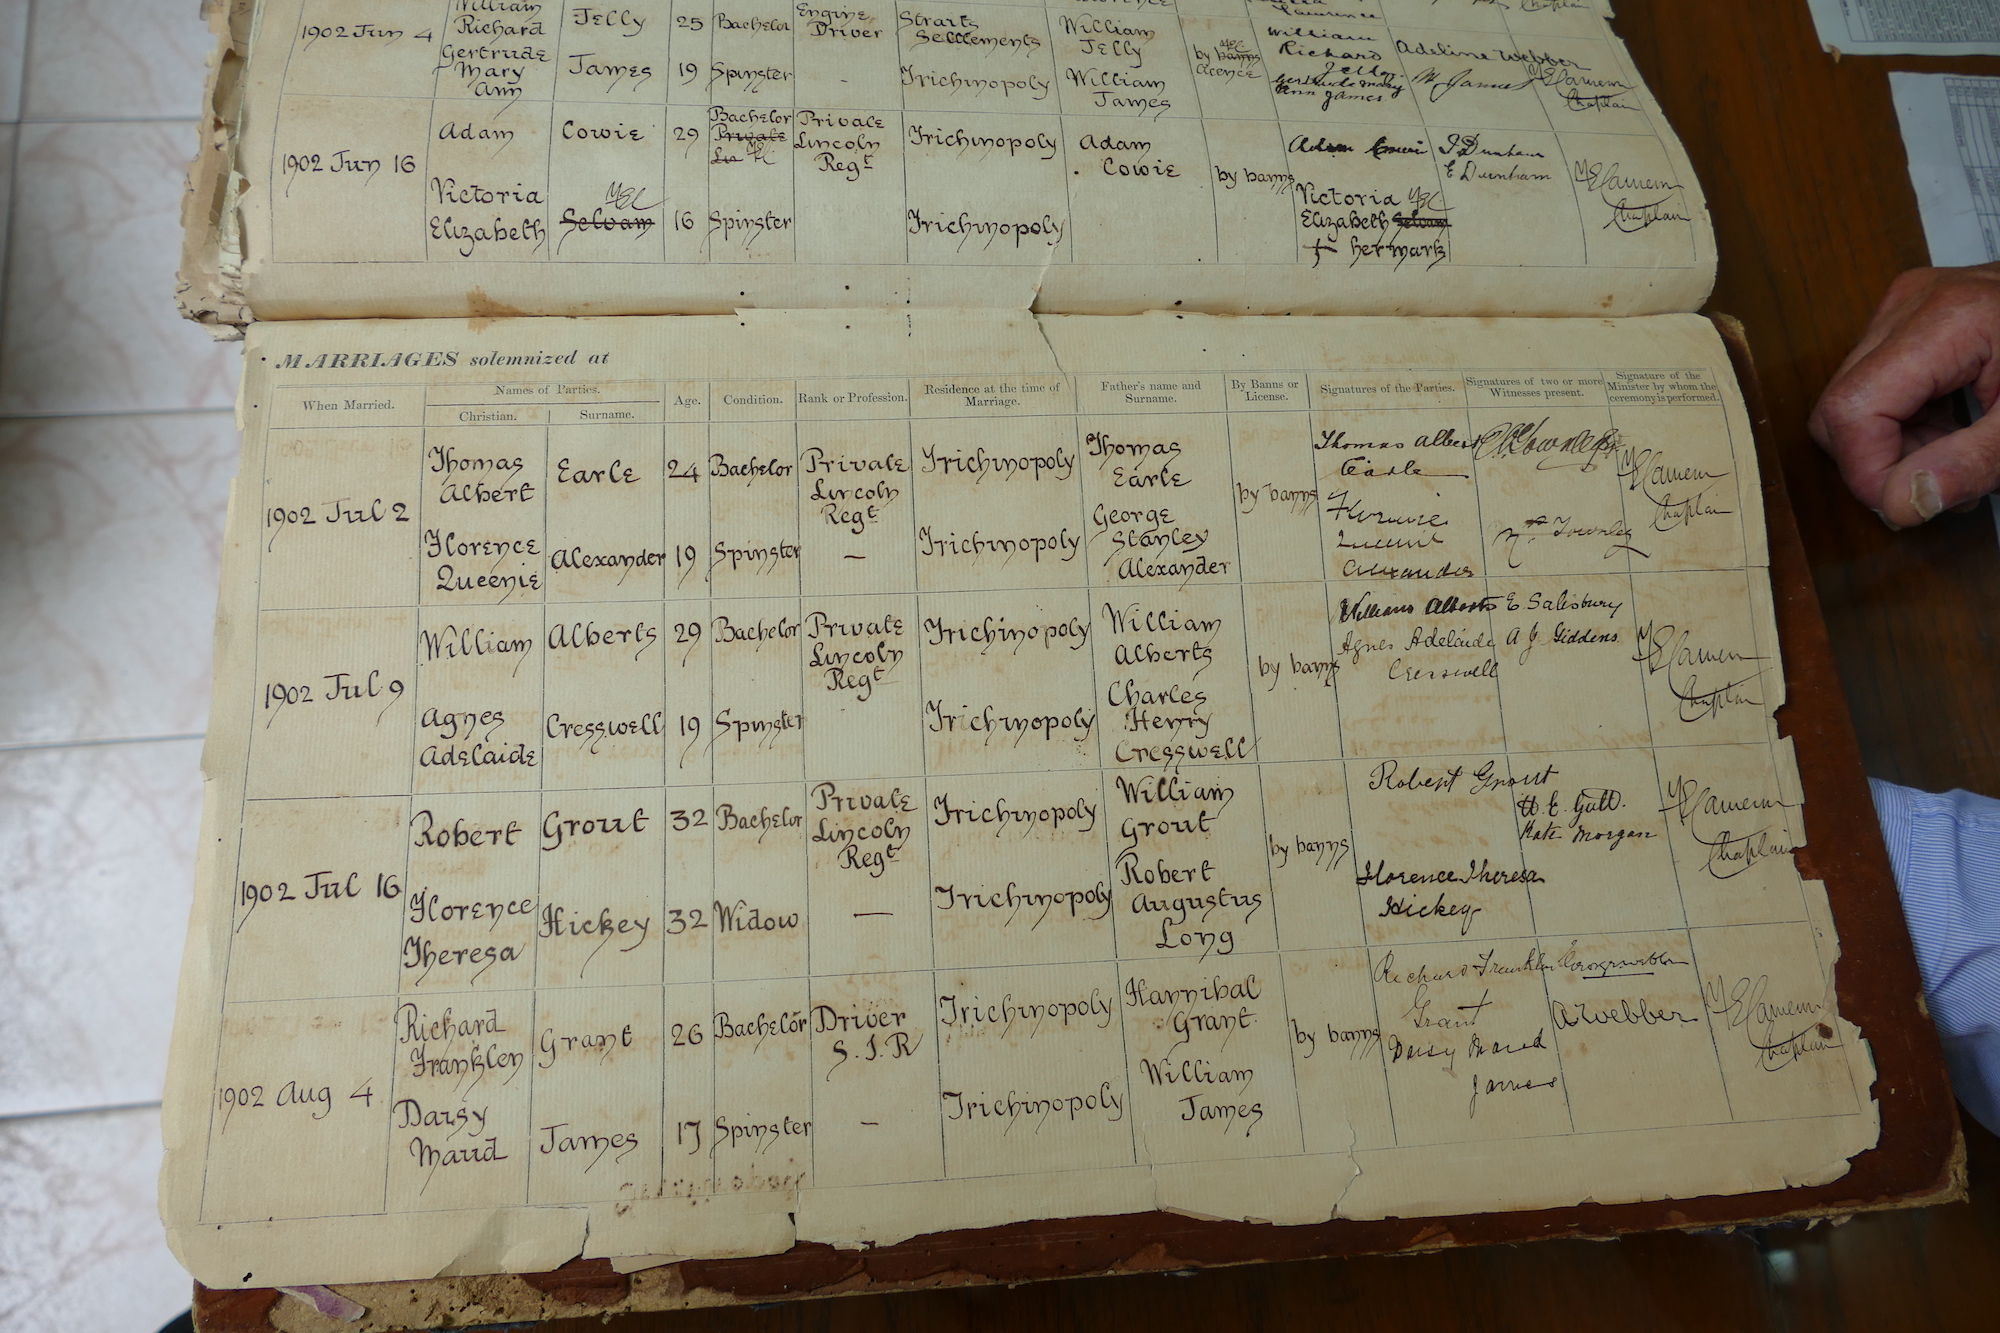 William
Richard Jelly 25 Bachelor Engine Driver Straits Settlements William Jelly
1902 Jun 4
Gertrude Mary Ann James 19 Spinster - Trichinopoly William James
by banns licence
William Richard Jelly
Gertrude Mary Ann James
Adeline Webber
W James
Chaplain
1902 Jun 16
Adam Cowie 29 Bachelor Private Private Lincoln Regt Trichinopoly Adam Cowie
Victoria Elizabeth Selvam 16 Spinster Trichinopoly
by banns
Adam Cowie
Victoria Elizabeth Selvam
+ her mark
J Dunham
E Dunham
Chaplain
MARRIAGES solemnized at
When Married.
Names of Parties.
Christian. Surname.
Age.
Condition.
Rank or Profession.
Residence at the time of Marriage.
Father's name and Surname.
By Banns or License.
Signatures of the Parties.
Signatures of two or more Witnesses present.
Signature of the Minister by whom the ceremony is performed.
1902 Jul 2
Thomas Albert Earle 24 Bachelor Private Lincoln Regt Trichinopoly Thomas Earle
Florence Queenie Alexander 19 Spinster — Trichinopoly George Stanley Alexander
by banns
Thomas Albert Earle
Florence Queenie Alexander
Townley
Chaplain
1902 Jul 9
William Alberts 29 Bachelor Private Lincoln Regt Trichinopoly William Alberts
Agnes Adelaide Cresswell 19 Spinster Trichinopoly Charles Henry Cresswell
by banns
William Alberts
Agnes Adelaide Cresswell
E. Salisbury
A J Giddens
Chaplain
1902 Jul 16
Robert Grout 32 Bachelor Private Lincoln Regt Trichinopoly William Grout
Florence Theresa Hickey 32 Widow — Trichinopoly Robert Augustus Long
by banns
Robert Grout
Florence Theresa Hickey
Kate Morgan
Chaplain
1902 Aug 4
Richard Franklen Grant 26 Bachelor Driver S.I.R Trichinopoly Hannibal Grant
Daisy Maud James 17 Spinster — Trichinopoly William James
by banns
Richard Franklin Grant
Daisy Maud James
A Webber
Chaplain